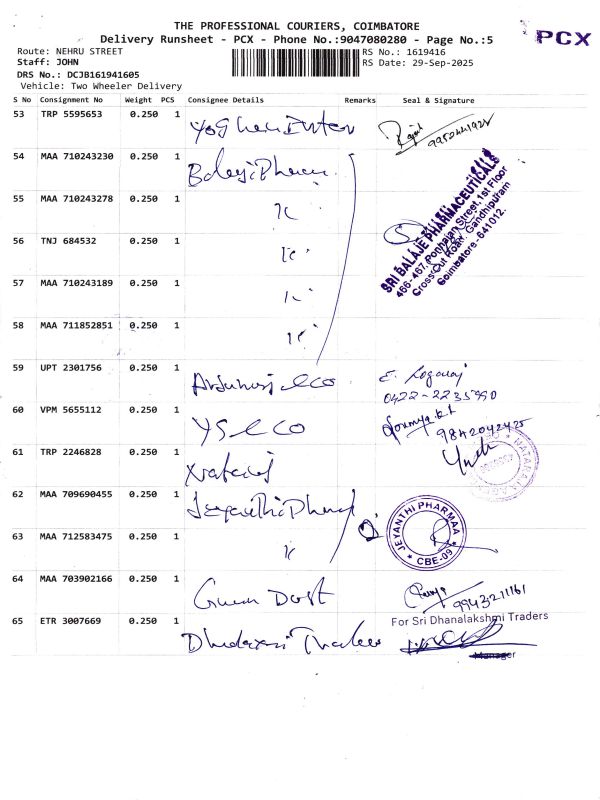 THE PROFESSIONAL COURIERS, COIMBATORE
Delivery Runsheet - PCX - Phone No.:9047080280 - Page No.:5
PCX
Route: NEHRU STREET
RS No.: 1619416
Staff: JOHN
RS Date: 29-Sep-2025
DRS No.: DCJB161941605
Vehicle: Two Wheeler Delivery
S No Consignment No Weight PCS Consignee Details Remarks Seal & Signature
53 TRP 5595653 0.250 1
54 MAA 710243230 0.250 1 Balaji Pharm
55 MAA 710243278 0.250 1
SRI BALAJE PHARMACEUTICALS
466-467, Ponnaian Street, 1st Floor
Cross Cut Road, Gandhipuram
Coimbatore - 641012.
56 TNJ 684532 0.250 1
57 MAA 710243189 0.250 1
58 MAA 711852851 0.250 1
59 UPT 2301756 0.250 1 E. Logaraj
0422-2235990
60 VPM 5655112 0.250 1 YS & CO Soumya
9842042425
61 TRP 2246828 0.250 1 Nataraj
62 MAA 709690455 0.250 1 Jeyanthi Pharm
JEYANTHI PHARMAA
CBE-09
63 MAA 712583475 0.250 1
64 MAA 703902166 0.250 1 Green Dost
9943211161
65 ETR 3007669 0.250 1
For Sri Dhanalakshmi Traders
Manager